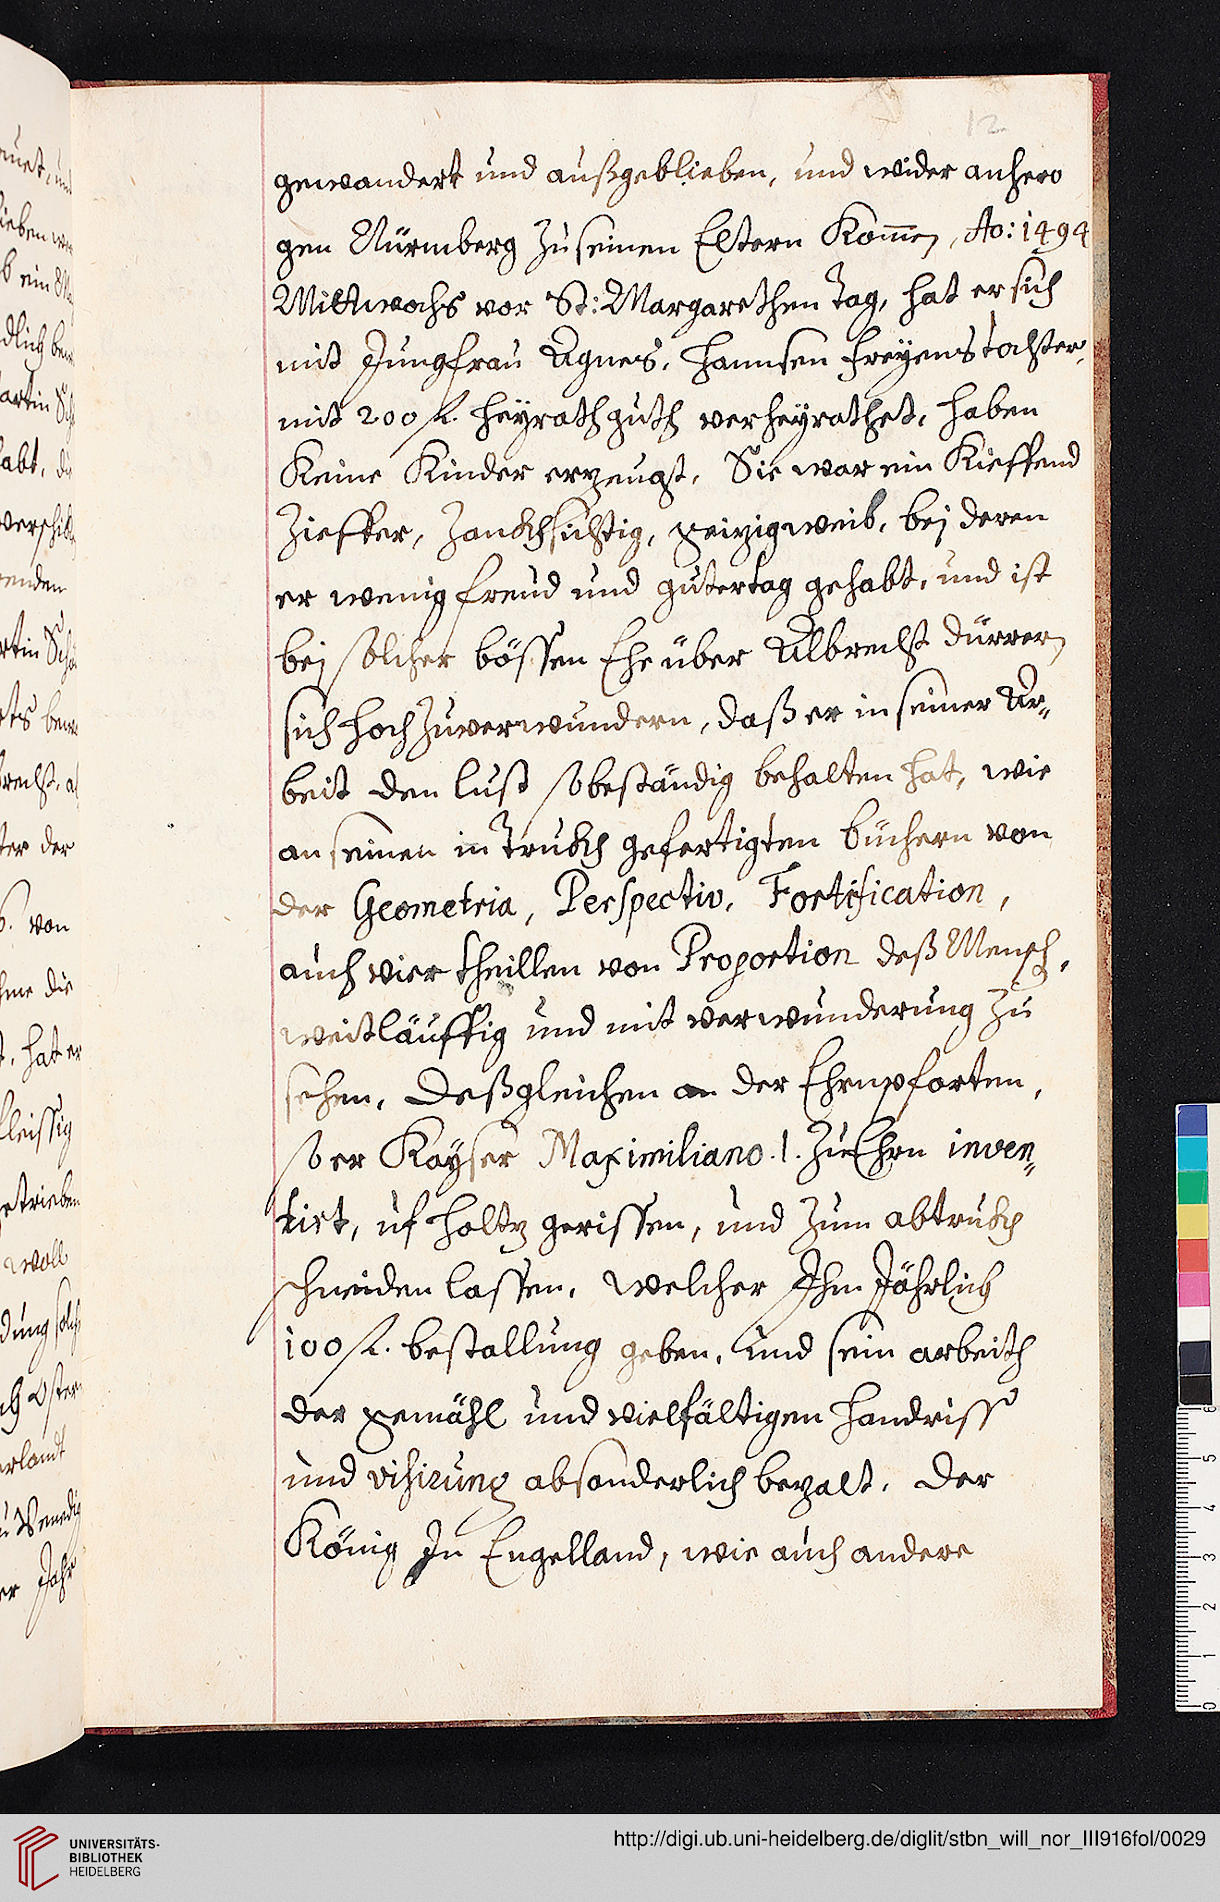 12
gewandert und außgeblieben, und wider anhero
gen Nürmberg zu seinen Eltern Kom̄en, Ao: 1494
Mittwochs vor St: Margarethen Tag, hat er sich
mit Jungfrau Agnes, Hannsen Freyens tochter,
mit 200 fl. heyrathguth verheyrathet, haben
Keine Kinder erzeugt, Sie war ein Kieffend
Zieffer, Zanckhsichtig, geizig weib, bej deren
er wenig freud und guter tag gehabt, und ist
bej solcher bössen Ehe über Albrecht Dürrer,
sich hoch zuverwundern, daß er in seiner Ar„
beit den lust so beständig behalten hat, wie
an seinen in Truckh gefertigten büchern von
der Geometria, Perspectiv, Fortification,
auch vier theillen von Proportion deß Mensch,
weitläuffig und mit verwunderung zu
sehen, Deßgleichen an der Ehrnpforten,
so er Kayser Maximiliano. I. zu Ehrn inven„
tirt, uf holtz gerissen, und zum abtruckh
schneiden lassen, welcher Ihm Jährlich
100 fl. bestallung geben, und sein arbeith
der gemähl und vielfältigen handriss
und visirung absonderlich bezalt. Der
König In Engelland, wie auch andere
UNIVERSITÄTS-
BIBLIOTHEK
HEIDELBERG
http://digi.ub.uni-heidelberg.de/diglit/stbn_will_nor_III916fol/0029